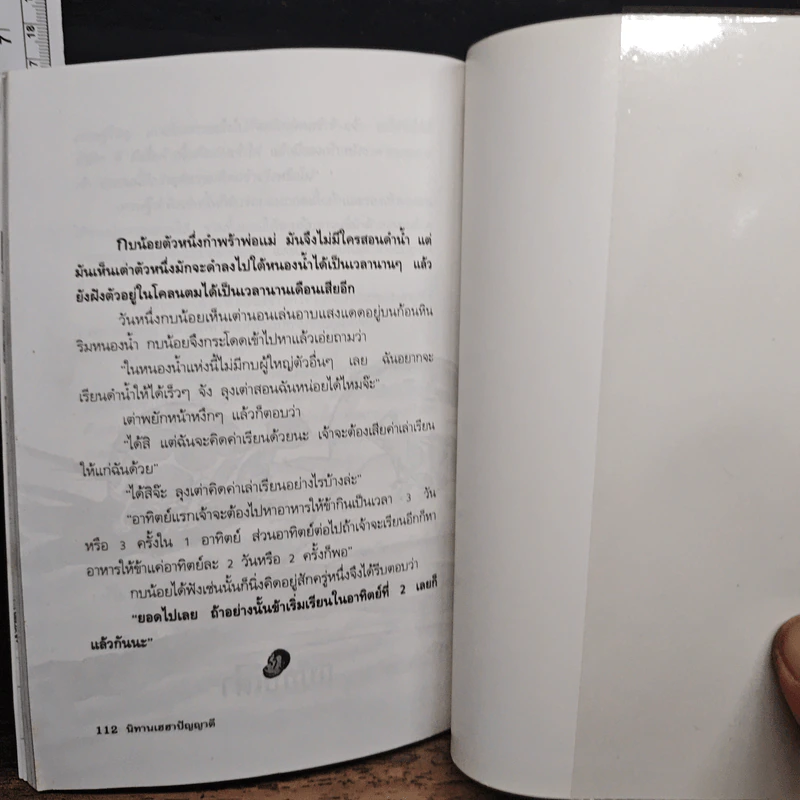 กบน้อยตัวหนึ่งกำพร้าพ่อแม่ มันจึงไม่มีใครสอนดำน้ำ แต่
มันเห็นเต่าตัวหนึ่งมักจะดำลงไปใต้หนองน้ำได้เป็นเวลานานๆ แล้ว
ยังฝังตัวอยู่ในโคลนตมได้เป็นเวลานานเดือนเสียอีก
วันหนึ่งกบน้อยเห็นเต่านอนเล่นอาบแสงแดดอยู่บนก้อนหิน
ริมหนองน้ำ กบน้อยจึงกระโดดเข้าไปหาแล้วเอ่ยถามว่า
"ในหนองน้ำแห่งนี้ไม่มีกบผู้ใหญ่ตัวอื่นๆ เลย ฉันอยากจะ
เรียนดำน้ำให้ได้เร็วๆ จัง ลุงเต่าสอนฉันหน่อยได้ไหมจ๊ะ"
เต่าพยักหน้าหงึกๆ แล้วก็ตอบว่า
"ได้สิ แต่ฉันจะคิดค่าเรียนด้วยนะ เจ้าจะต้องเสียค่าเล่าเรียน
ให้แก่ฉันด้วย"
"ได้สิจ๊ะ ลุงเต่าคิดค่าเล่าเรียนอย่างไรบ้างล่ะ"
"อาทิตย์แรกเจ้าจะต้องไปหาอาหารให้ข้ากินเป็นเวลา 3 วัน
หรือ 3 ครั้งใน 1 อาทิตย์ ส่วนอาทิตย์ต่อไปถ้าเจ้าจะเรียนอีกก็หา
อาหารให้ข้าแค่อาทิตย์ละ 2 วันหรือ 2 ครั้งก็พอ"
กบน้อยได้ฟังเช่นนั้นก็นิ่งคิดอยู่สักครู่หนึ่งจึงได้รีบตอบว่า
"ยอดไปเลย ถ้าอย่างนั้นข้าเริ่มเรียนในอาทิตย์ที่ 2 เลยก็
แล้วกันนะ"
112 นิทานเฮฮาปัญญาดี